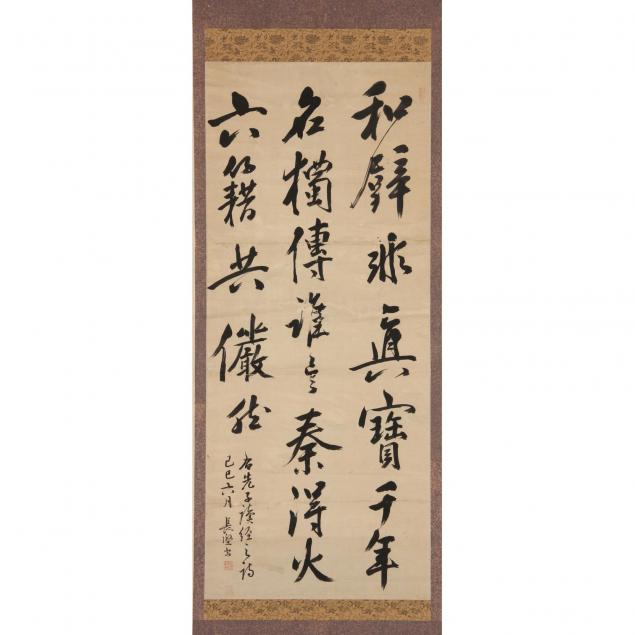 和璧非眞寶千年
名獨傳誰言秦得火
六籍共儼然
右先子讀經之詩
己巳六月 長堅書